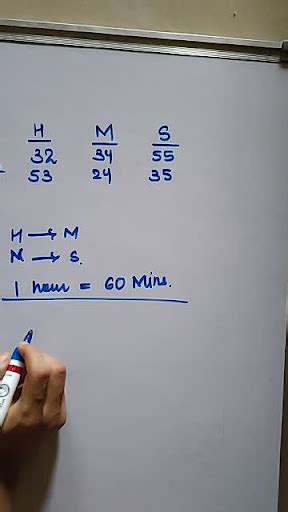 H M S
32 34 55
53 24 35
H → M
M → S.
1 hour = 60 Mins.